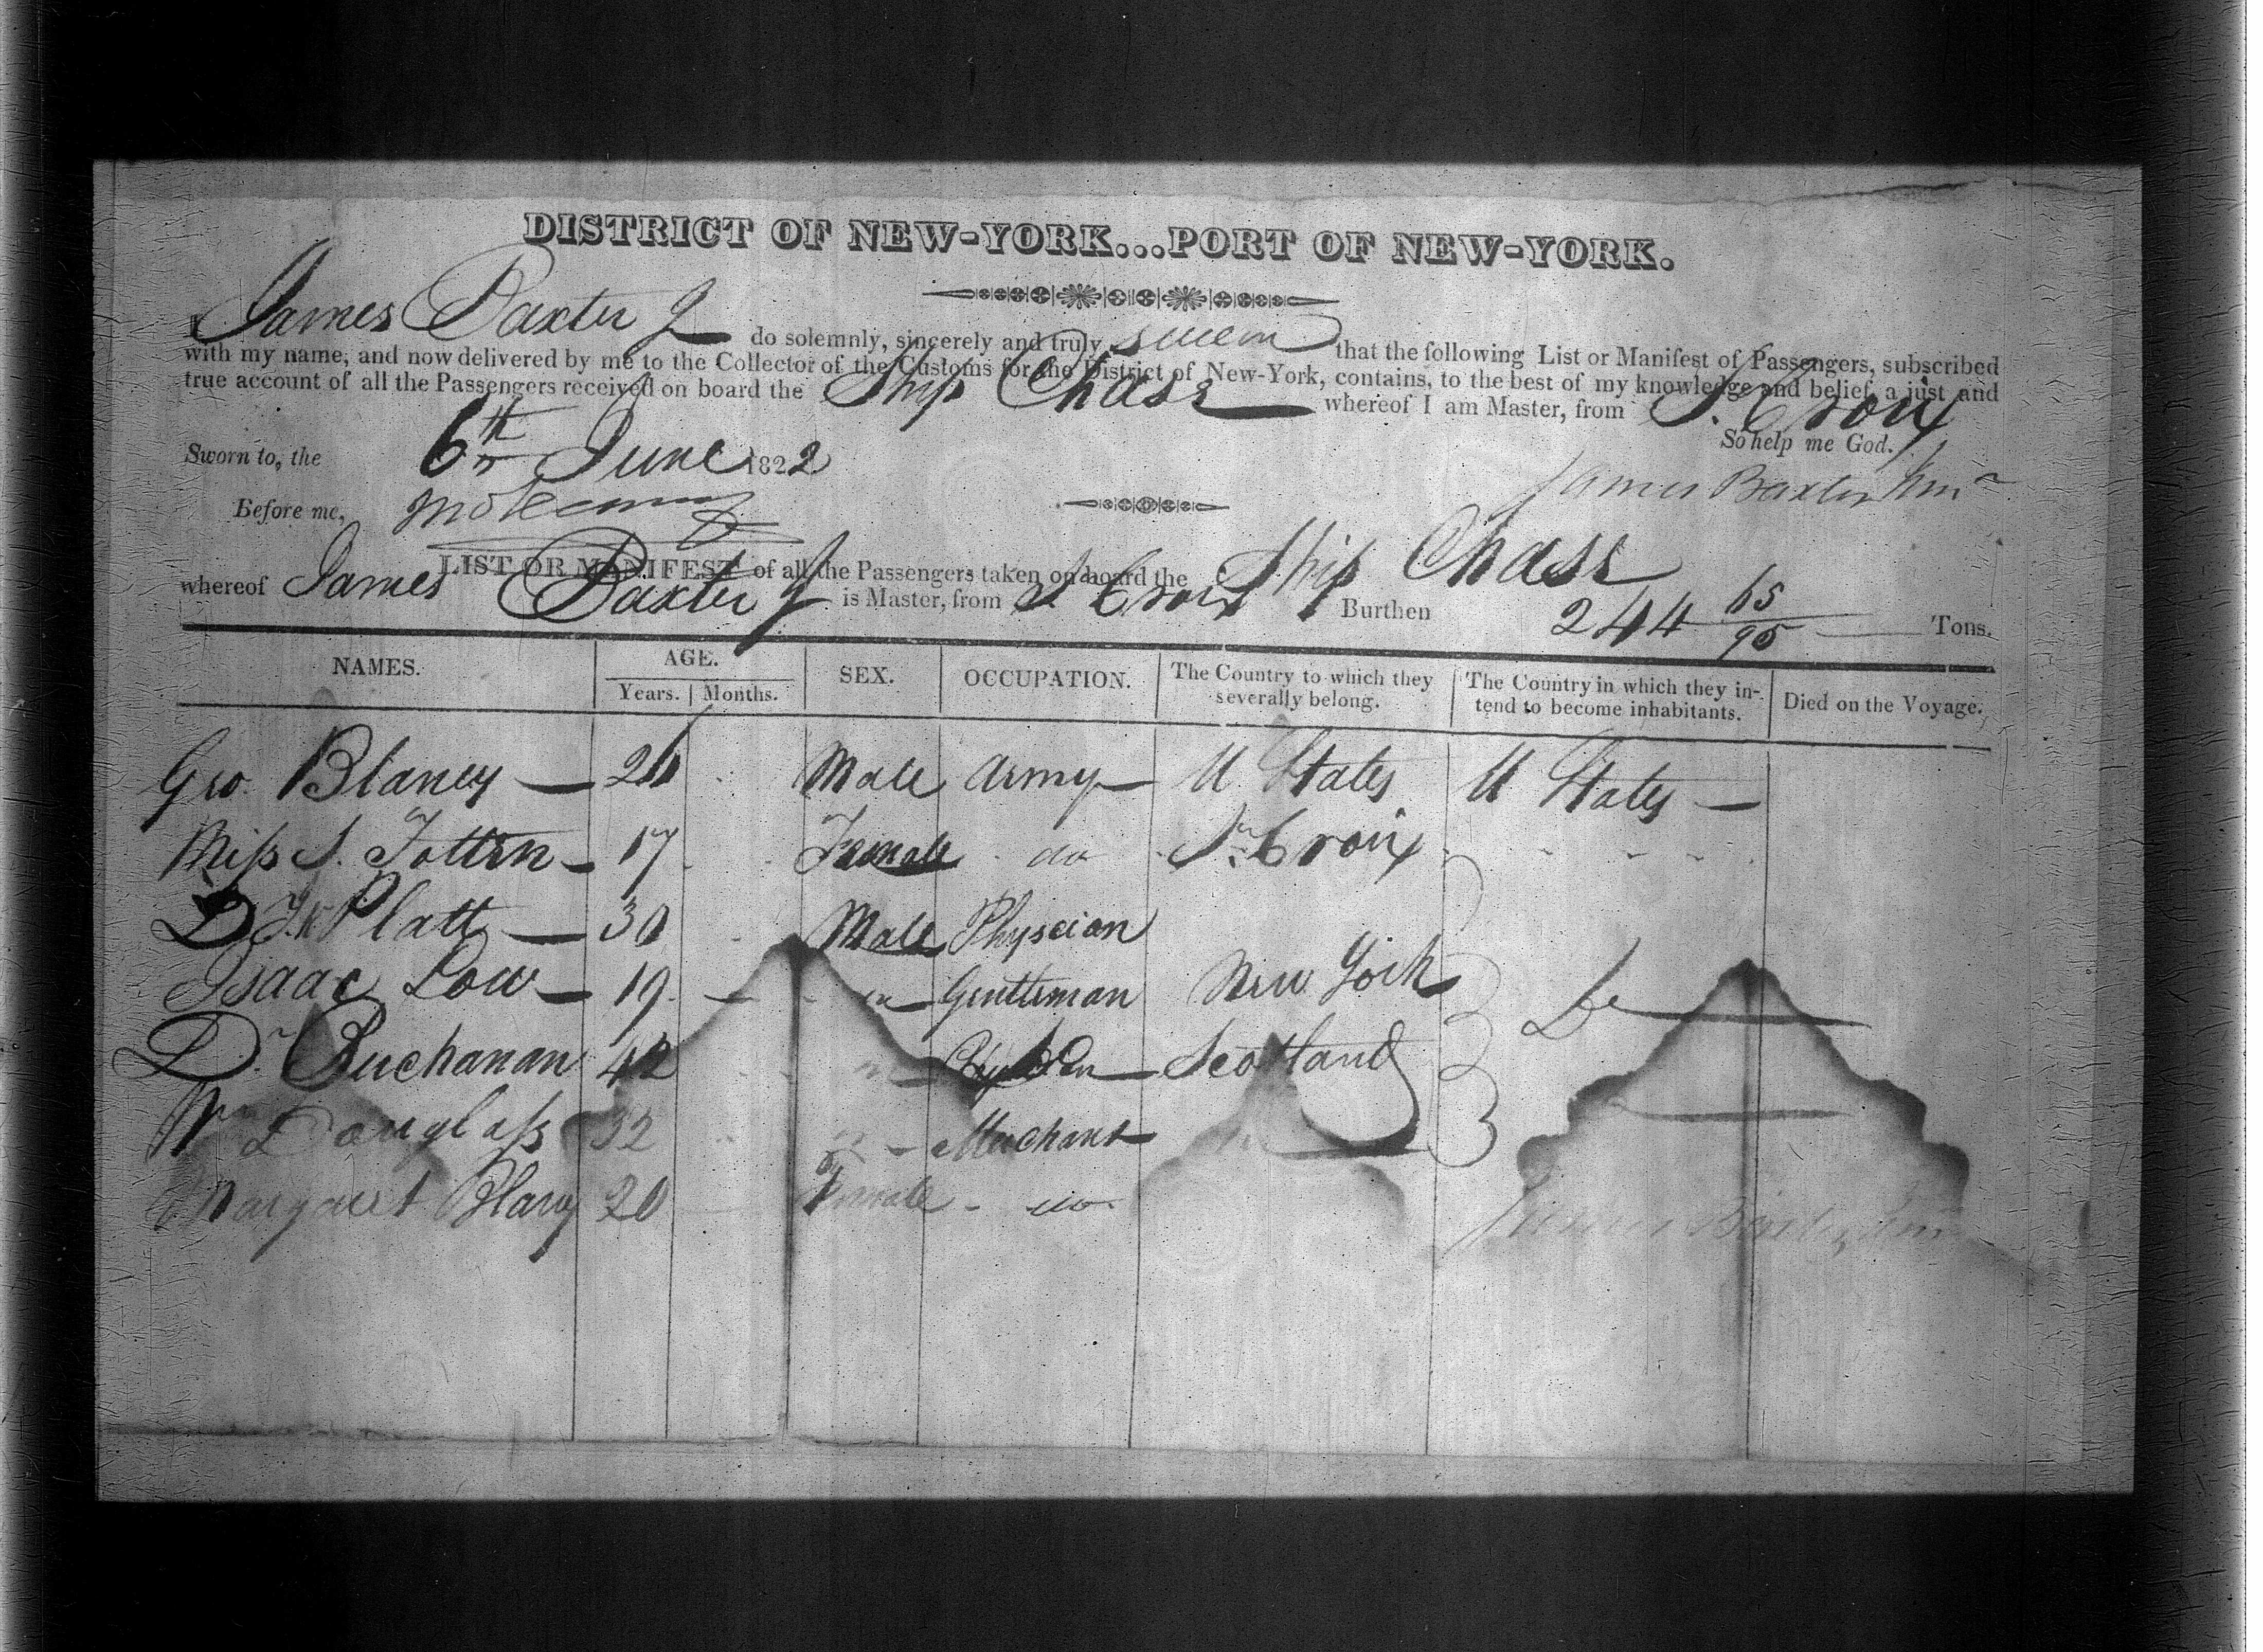 DISTRICT OF NEW-YORK...PORT OF NEW-YORK.
I James Baxter Jr do solemnly, sincerely and truly swear that the following List or Manifest of Passengers, subscribed
with my name, and now delivered by me to the Collector of the Customs for the District of New-York, contains, to the best of my knowledge and belief, a just and
true account of all the Passengers received on board the Ship Chase whereof I am Master, from St. Croix
So help me God.
Sworn to, the 6th June 1822
James Baxter Junr
Before me,
LIST OR MANIFEST of all the Passengers taken on board the Ship Chase
whereof James Baxter Jr is Master, from St Croix Burthen 244 65/95 Tons.
NAMES. AGE. SEX. OCCUPATION. The Country to which they severally belong. The Country in which they intend to become inhabitants. Died on the Voyage.
Years. Months.
Geo. Blaney 26 Male Army U States U States
Miss S. Totten 17 Female do St. Croix
Dr Platt 30 Male Physcian
Isaac Low 19 Gentleman New York Do
Dr. Buchanan 42 Scotland
Wm Douglass 32 Merchant
Margaret Blany 20 Female do
James Baxter Junr